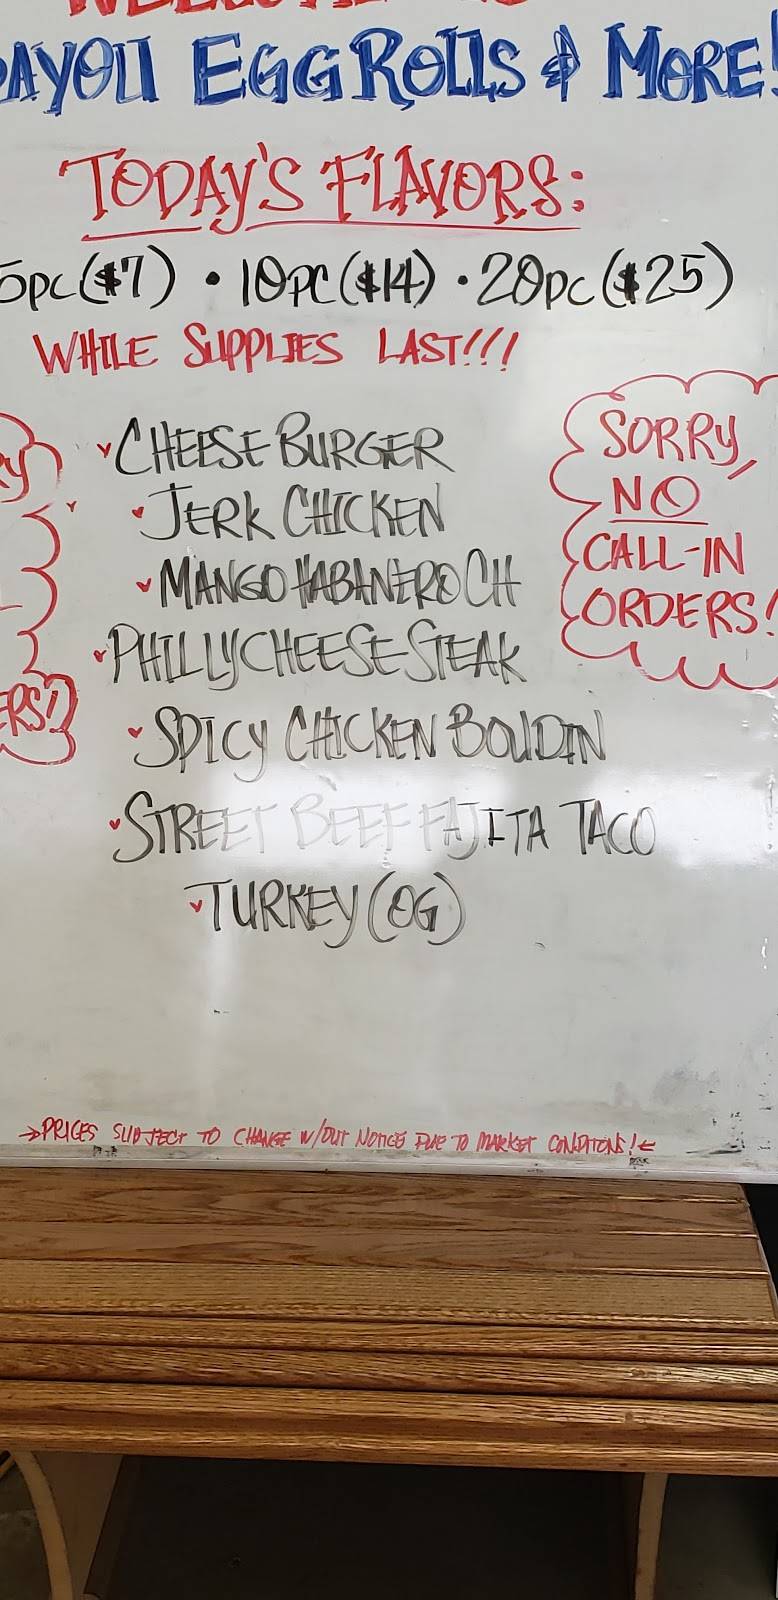 AYOU EGG ROLLS & MORE!
TODAY'S FLAVORS:
5PC ($7) • 10PC ($14) • 20PC ($25)
WHILE SUPPLIES LAST!!!
CHEESE BURGER
JERK CHICKEN
MANGO HABANERO CH
PHILLY CHEESE STEAK
SPICY CHICKEN BOUDIN
STREET BEEF FAJITA TACO
TURKEY (OG)
SORRY,
NO
CALL-IN
ORDERS!
RY
ERS!
→PRICES SUBJECT TO CHANGE W/OUT NOTICE DUE TO MARKET CONDITONS!←